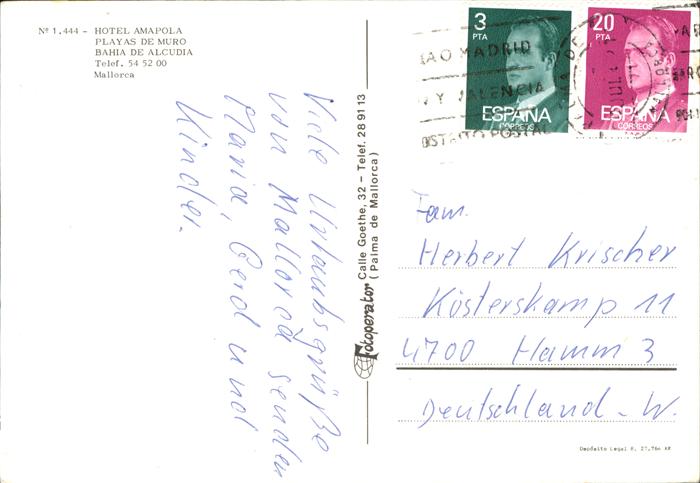 Nº 1.444 - HOTEL AMAPOLA
PLAYAS DE MURO
BAHIA DE ALCUDIA
Telef. 54 52 00
Mallorca
Viele Urlaubsgrüße
von Mallorca senden
Maria, Gerd und
Kinder.
Fotoperator Calle Goethe, 32 - Telef. 28 91 13
(Palma de Mallorca)
3
PTA
ESPAÑA
CORREOS
20
PTA
ESPAÑA
CORREOS
MADRID
Y VALENCIA
DISTRITO POSTAL
JUL
MALLORCA
Fam.
Herbert Krischer
Kösterskamp 11
4700 Hamm 3
Deutschland-W.
Depósito Legal B. 27.766